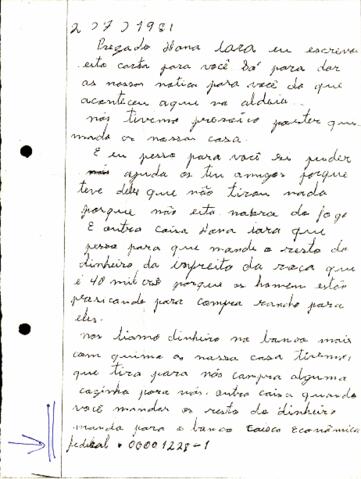 2 ) 7 ) 1981
Pregado Dona Iara eu escreva
esta carta para você só para dar
as nossas notica para você do que
aconteceu aqui na aldeia.
nós tivemo prensóio por ter quei
mado as nossas casa.
E eu pesso para você se puder
ajuda os teu amigos porque
teve deles que não tirou nada
porque não esta na hora do fogo
E outra caisa Dona Iara que
pesso para que mande o resto do
dinheiro da infreito da roça que
é 40 mil crs porque os homem estão
prasicando para compra rancho para
eles.
nos tiamo dinheiro na banco mais
com quimo as nossa casa tivemos
que tira para nós compra alguma
cazinha para nós. outra caisa quando
você mandar os resto do dinheiro
manda para o banco Caixa Econômica
federal . 00001228-1